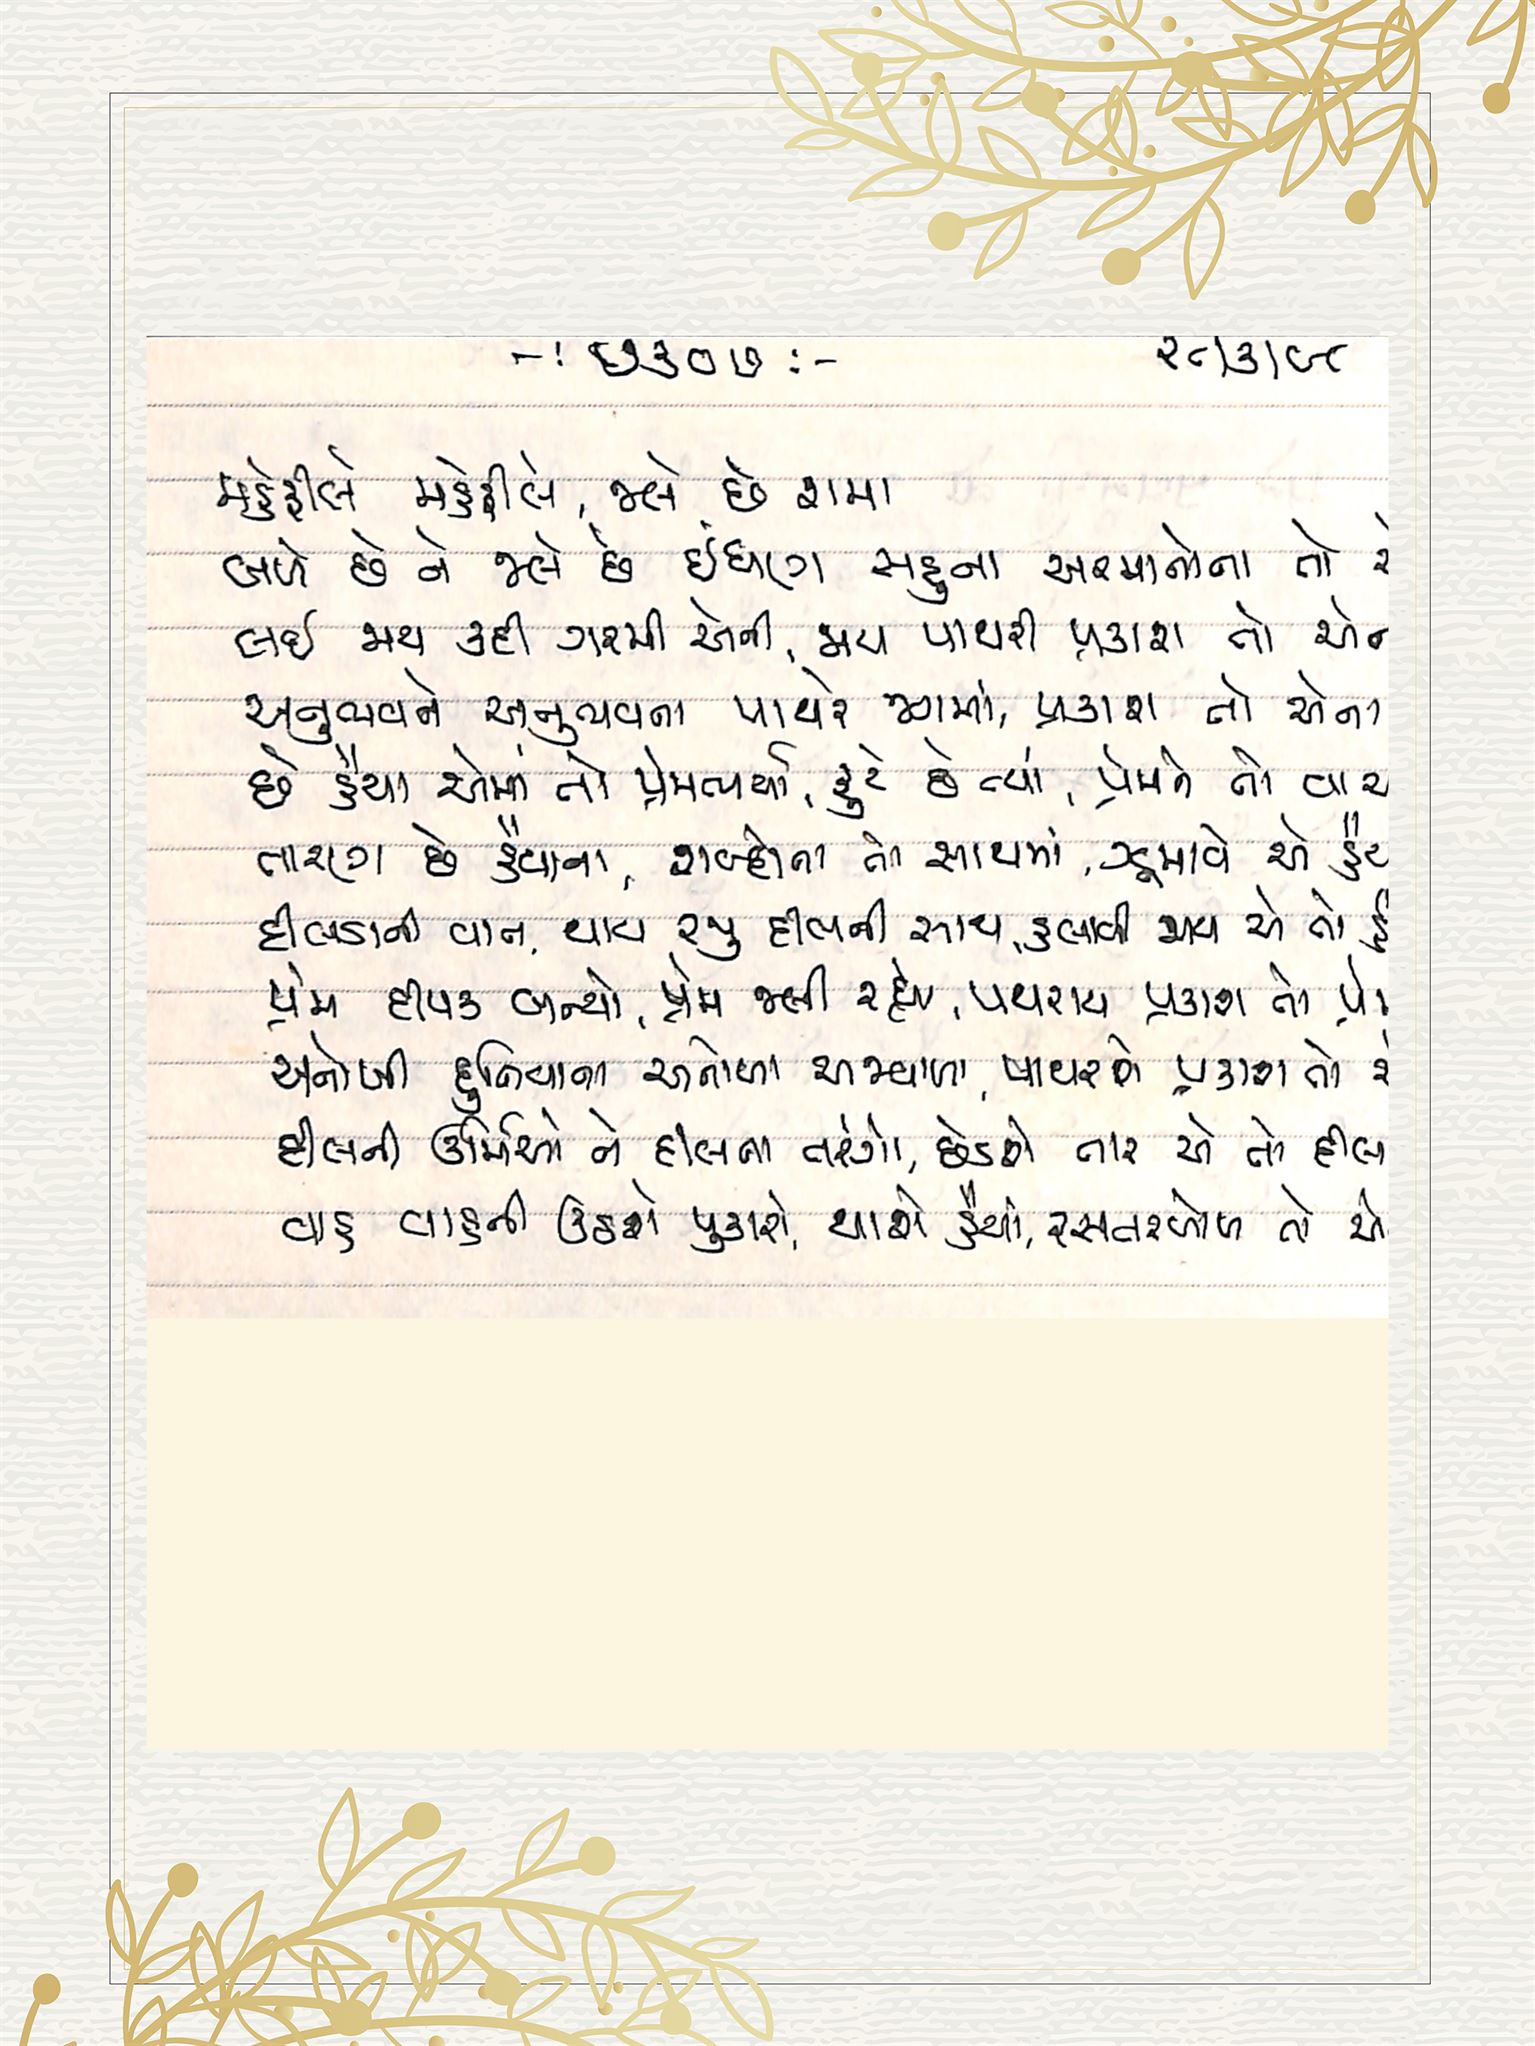 -: ૬૩૦૭ :-
મહેફીલે મહેફીલે, જલે છે શમા
બળે છે ને જલે છે ઈંધણ સહુના અરમાનોના તો
લઈ જાય કદી ગરમી એની, જાય પાથરી પ્રકાશ તો
અનુભવને અનુભવના પાથરે જગમાં, પ્રકાશ તો એના
છે હૈયા એમાં તો પ્રેમભર્યા, ફુટે છે ત્યાં, પ્રેમને તો
તારણ છે હૈયાના, શબ્દોના તો સાથમાં, ઝૂમાવે એ
દીલડાની વાત, થાય રજુ દીલની સાથ, જાય એ તો
પ્રેમ દીપક બન્યો, પ્રેમ જલી રહ્યો, પથરાય પ્રકાશ તો
અનોખી દુનિયાના અનોખા અજવાળા, પાથરશે પ્રકાશ તો
દીલની ઉર્મિઓ ને દીલના તરંગો, છેડશે તાર એ તો દીલ
વાહ વાહની ઉઠશે પુકારો, થાશે હૈયાં, રસતરબોળ તો